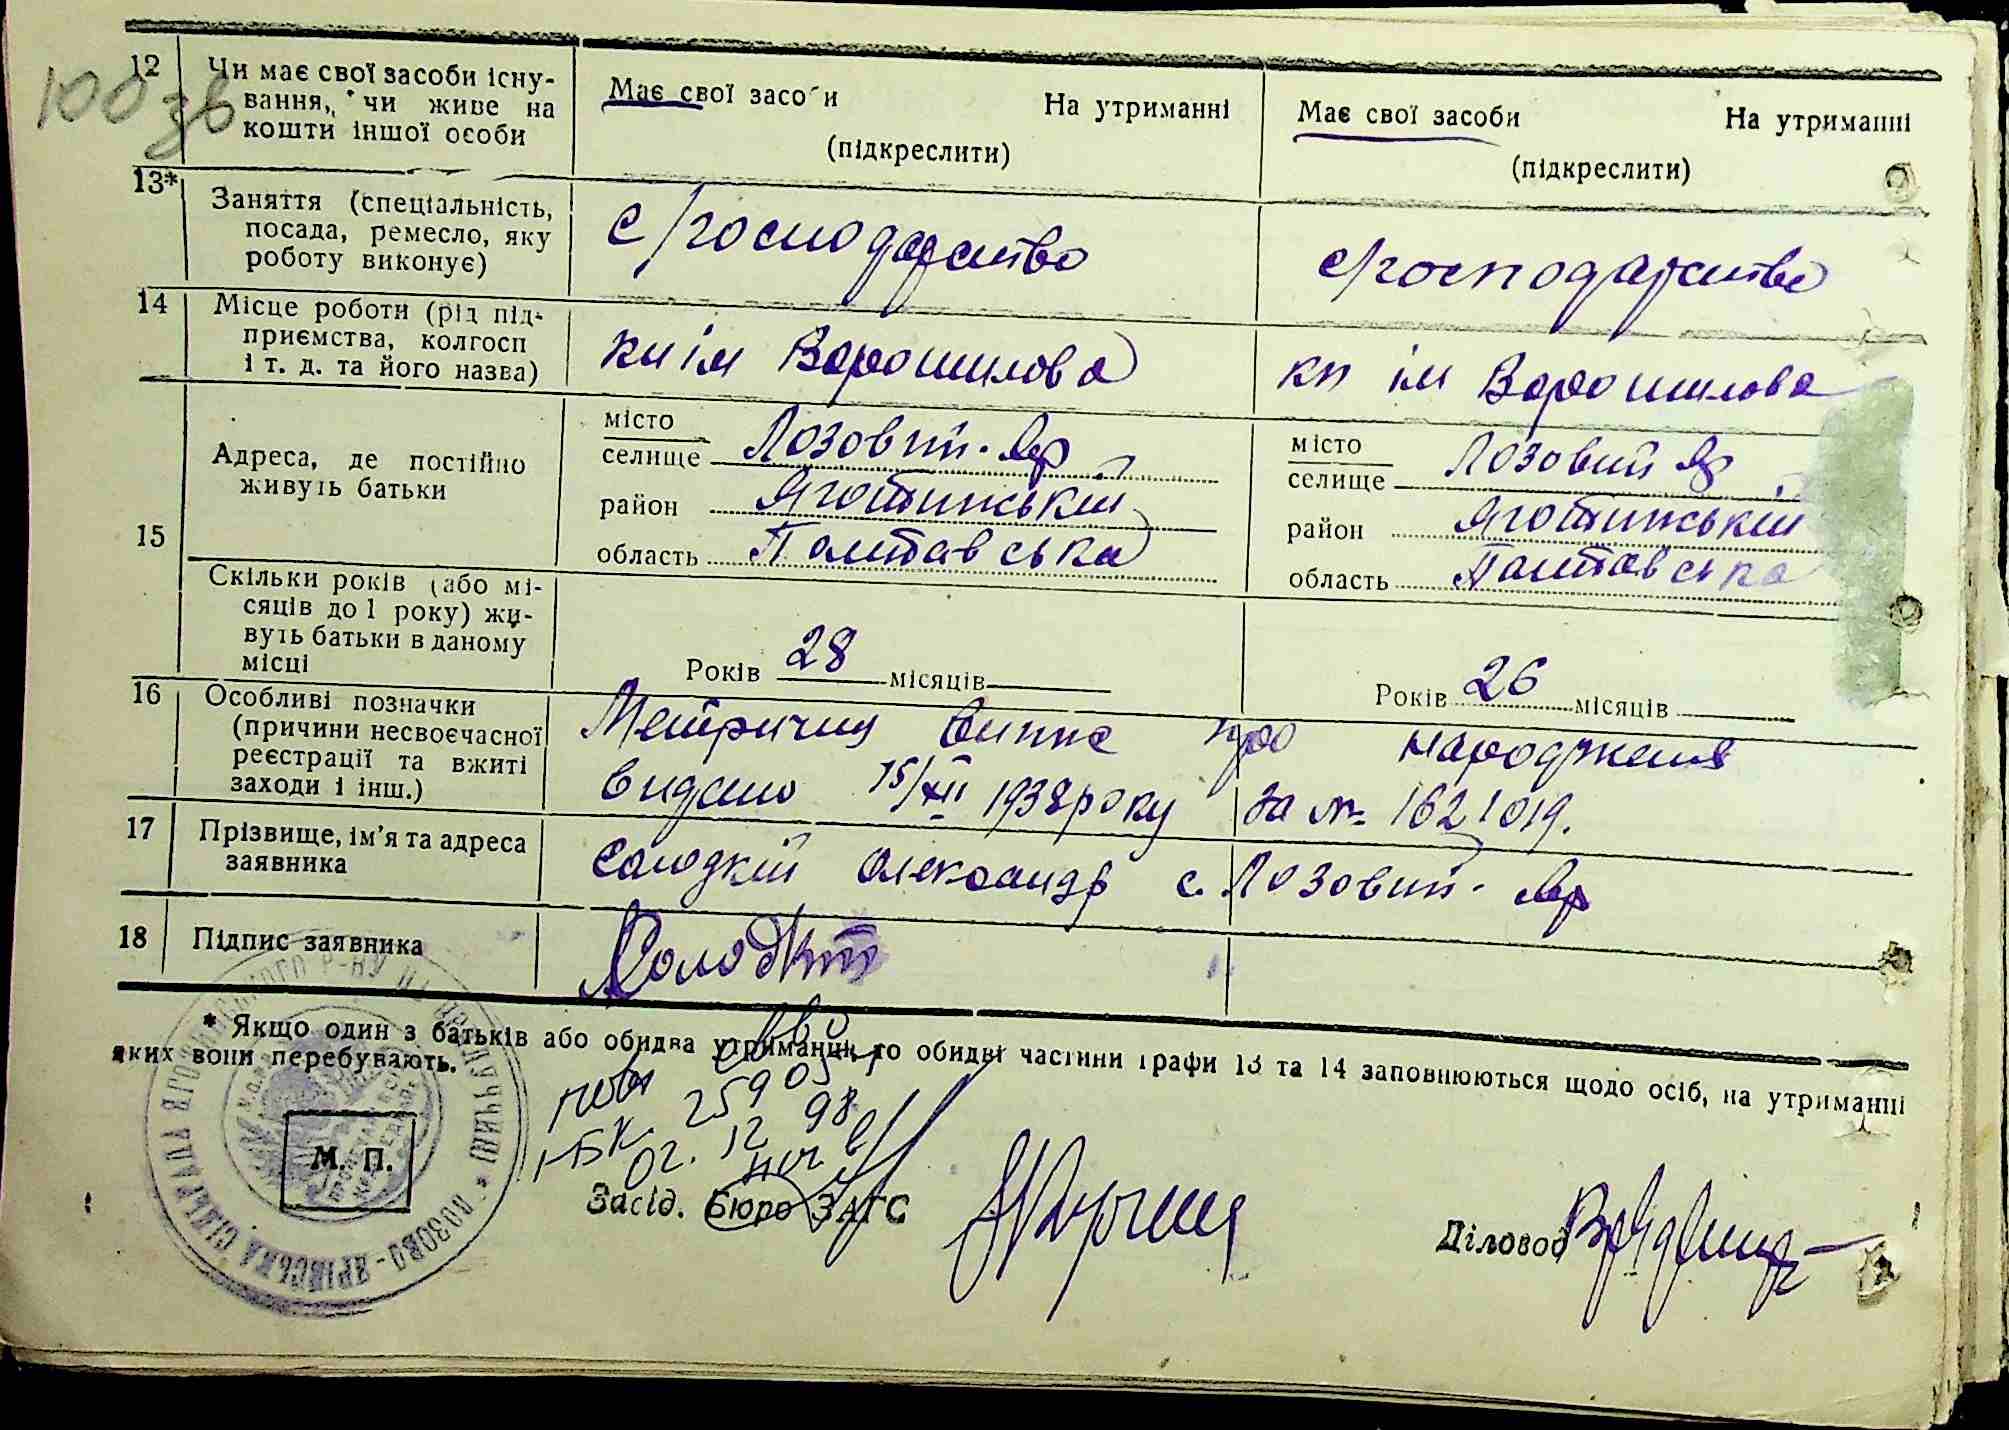 100 зв
12 Чи має свої засоби існу-
вання, чи живе на
кошти іншої особи
Має свої засоби На утриманні
(підкреслити)
Має свої засоби На утриманні
(підкреслити)
13* Заняття (спеціальність,
посада, ремесло, яку
роботу виконує)
с/господарство
с/господарство
14 Місце роботи (рід під-
приємства, колгосп
і т. д. та його назва)
кп ім Ворошилова
кп ім Ворошилова
15 Адреса, де постійно
живуть батьки
місто
селище Лозовий-Яр
район Яготинський
область Полтавська
місто
селище Лозовий Яр
район Яготинський
область Полтавська
Скільки років (або мі-
сяців до 1 року) жи-
вуть батьки в даному
місці
Років 28 місяців
Років 26 місяців
16 Особливі позначки
(причини несвоєчасної
реєстрації та вжиті
заходи і інш.)
про народження
видано 15/XII 1938 року за № 1621019.
17 Прізвище, ім'я та адреса
заявника
Солодкій Олександр с. Лозовий-Яр
18 Підпис заявника
* Якщо один з батьків або обидва утриманці, то обидві частини графи 13 та 14 заповнюються щодо осіб, на утриманні
яких вони перебувають.
І-БК 25903
02. 12 98
М. П.
Засід. Бюро ЗАГС
Діловод